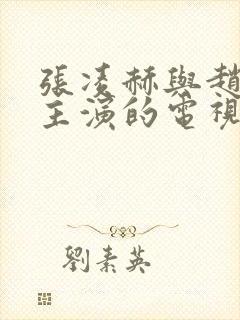 張凌赫與趙
主演的電視
劉素英